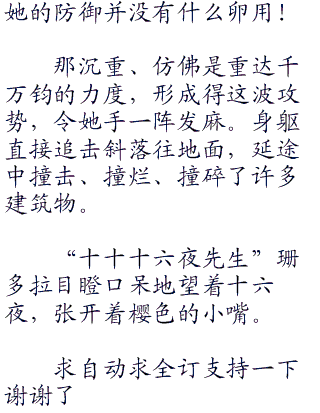 她的防御并没有什么卵用！
那沉重、仿佛是重达千
万钧的力度，形成得这波攻
势，令她手一阵发麻。身躯
直接追击斜落往地面，延途
中撞击、撞烂、撞碎了许多
建筑物。
“十十十六夜先生”珊
多拉目瞪口呆地望着十六
夜，张开着樱色的小嘴。
求自动求全订支持一下
谢谢了